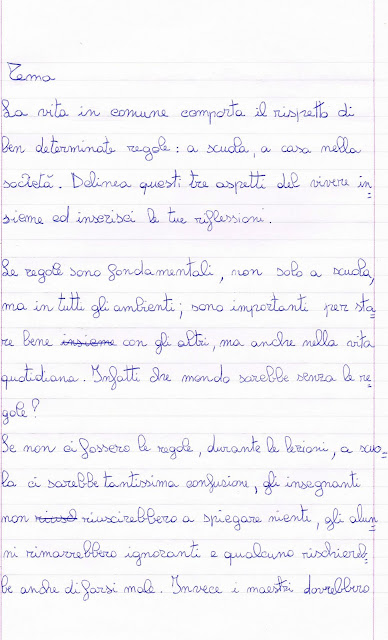 Tema
La vita in comune comporta il rispetto di
ben determinate regole: a scuola, a casa nella
società. Delinea questi tre aspetti del vivere in=
sieme ed inserisci le tue riflessioni.
Le regole sono fondamentali, non solo a scuola,
ma in tutti gli ambienti; sono importanti per sta=
re bene insieme con gli altri, ma anche nella vita
quotidiana. Infatti che mondo sarebbe senza le re=
gole?
Se non ci fossero le regole, durante le lezioni, a scuo=
la ci sarebbe tantissima confusione, gli insegnanti
non riusci riuscirebbero a spiegare niente, gli alun=
ni rimarrebbero ignoranti e qualcuno rischiereb=
be anche di farsi male. Invece i maestri dovrebbero